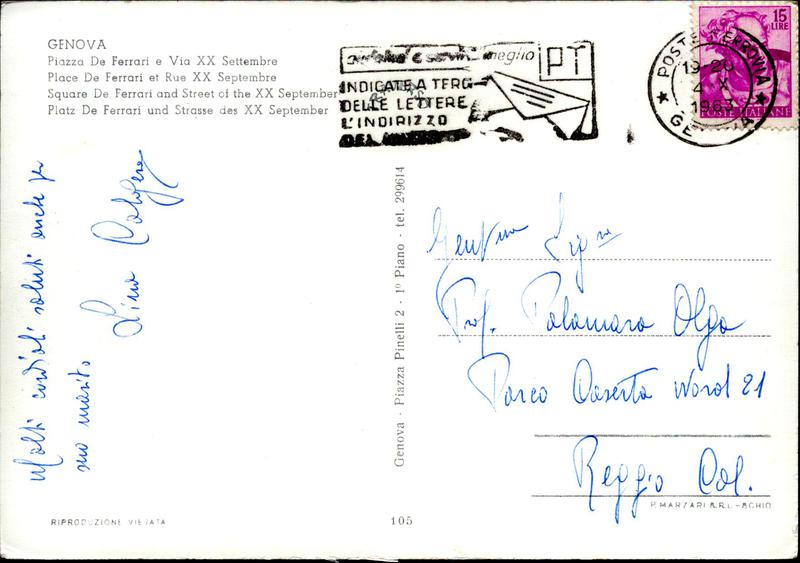 GENOVA
Piazza De Ferrari e Via XX Settembre
Place De Ferrari et Rue XX Septembre
Square De Ferrari and Street of the XX September
Platz De Ferrari und Strasse des XX September
meglio
PT
INDICATE A TERGO
DELLE LETTERE
L'INDIRIZZO
DEL
15
LIRE
POSTE ITALIANE
POSTE FERROVIA
19-20
4 X
1963
GENOVA
Molti cordiali saluti anche per
mio marito
Lina
Gent.ma Sig.ra
Prof. Palamara Olga
Parco Caserta Nord 21
Reggio Cal.
Genova - Piazza Pinelli 2 - 1º Piano - tel. 299614
RIPRODUZIONE VIETATA
105
P. MARZARI S.R.L. - SCHIO